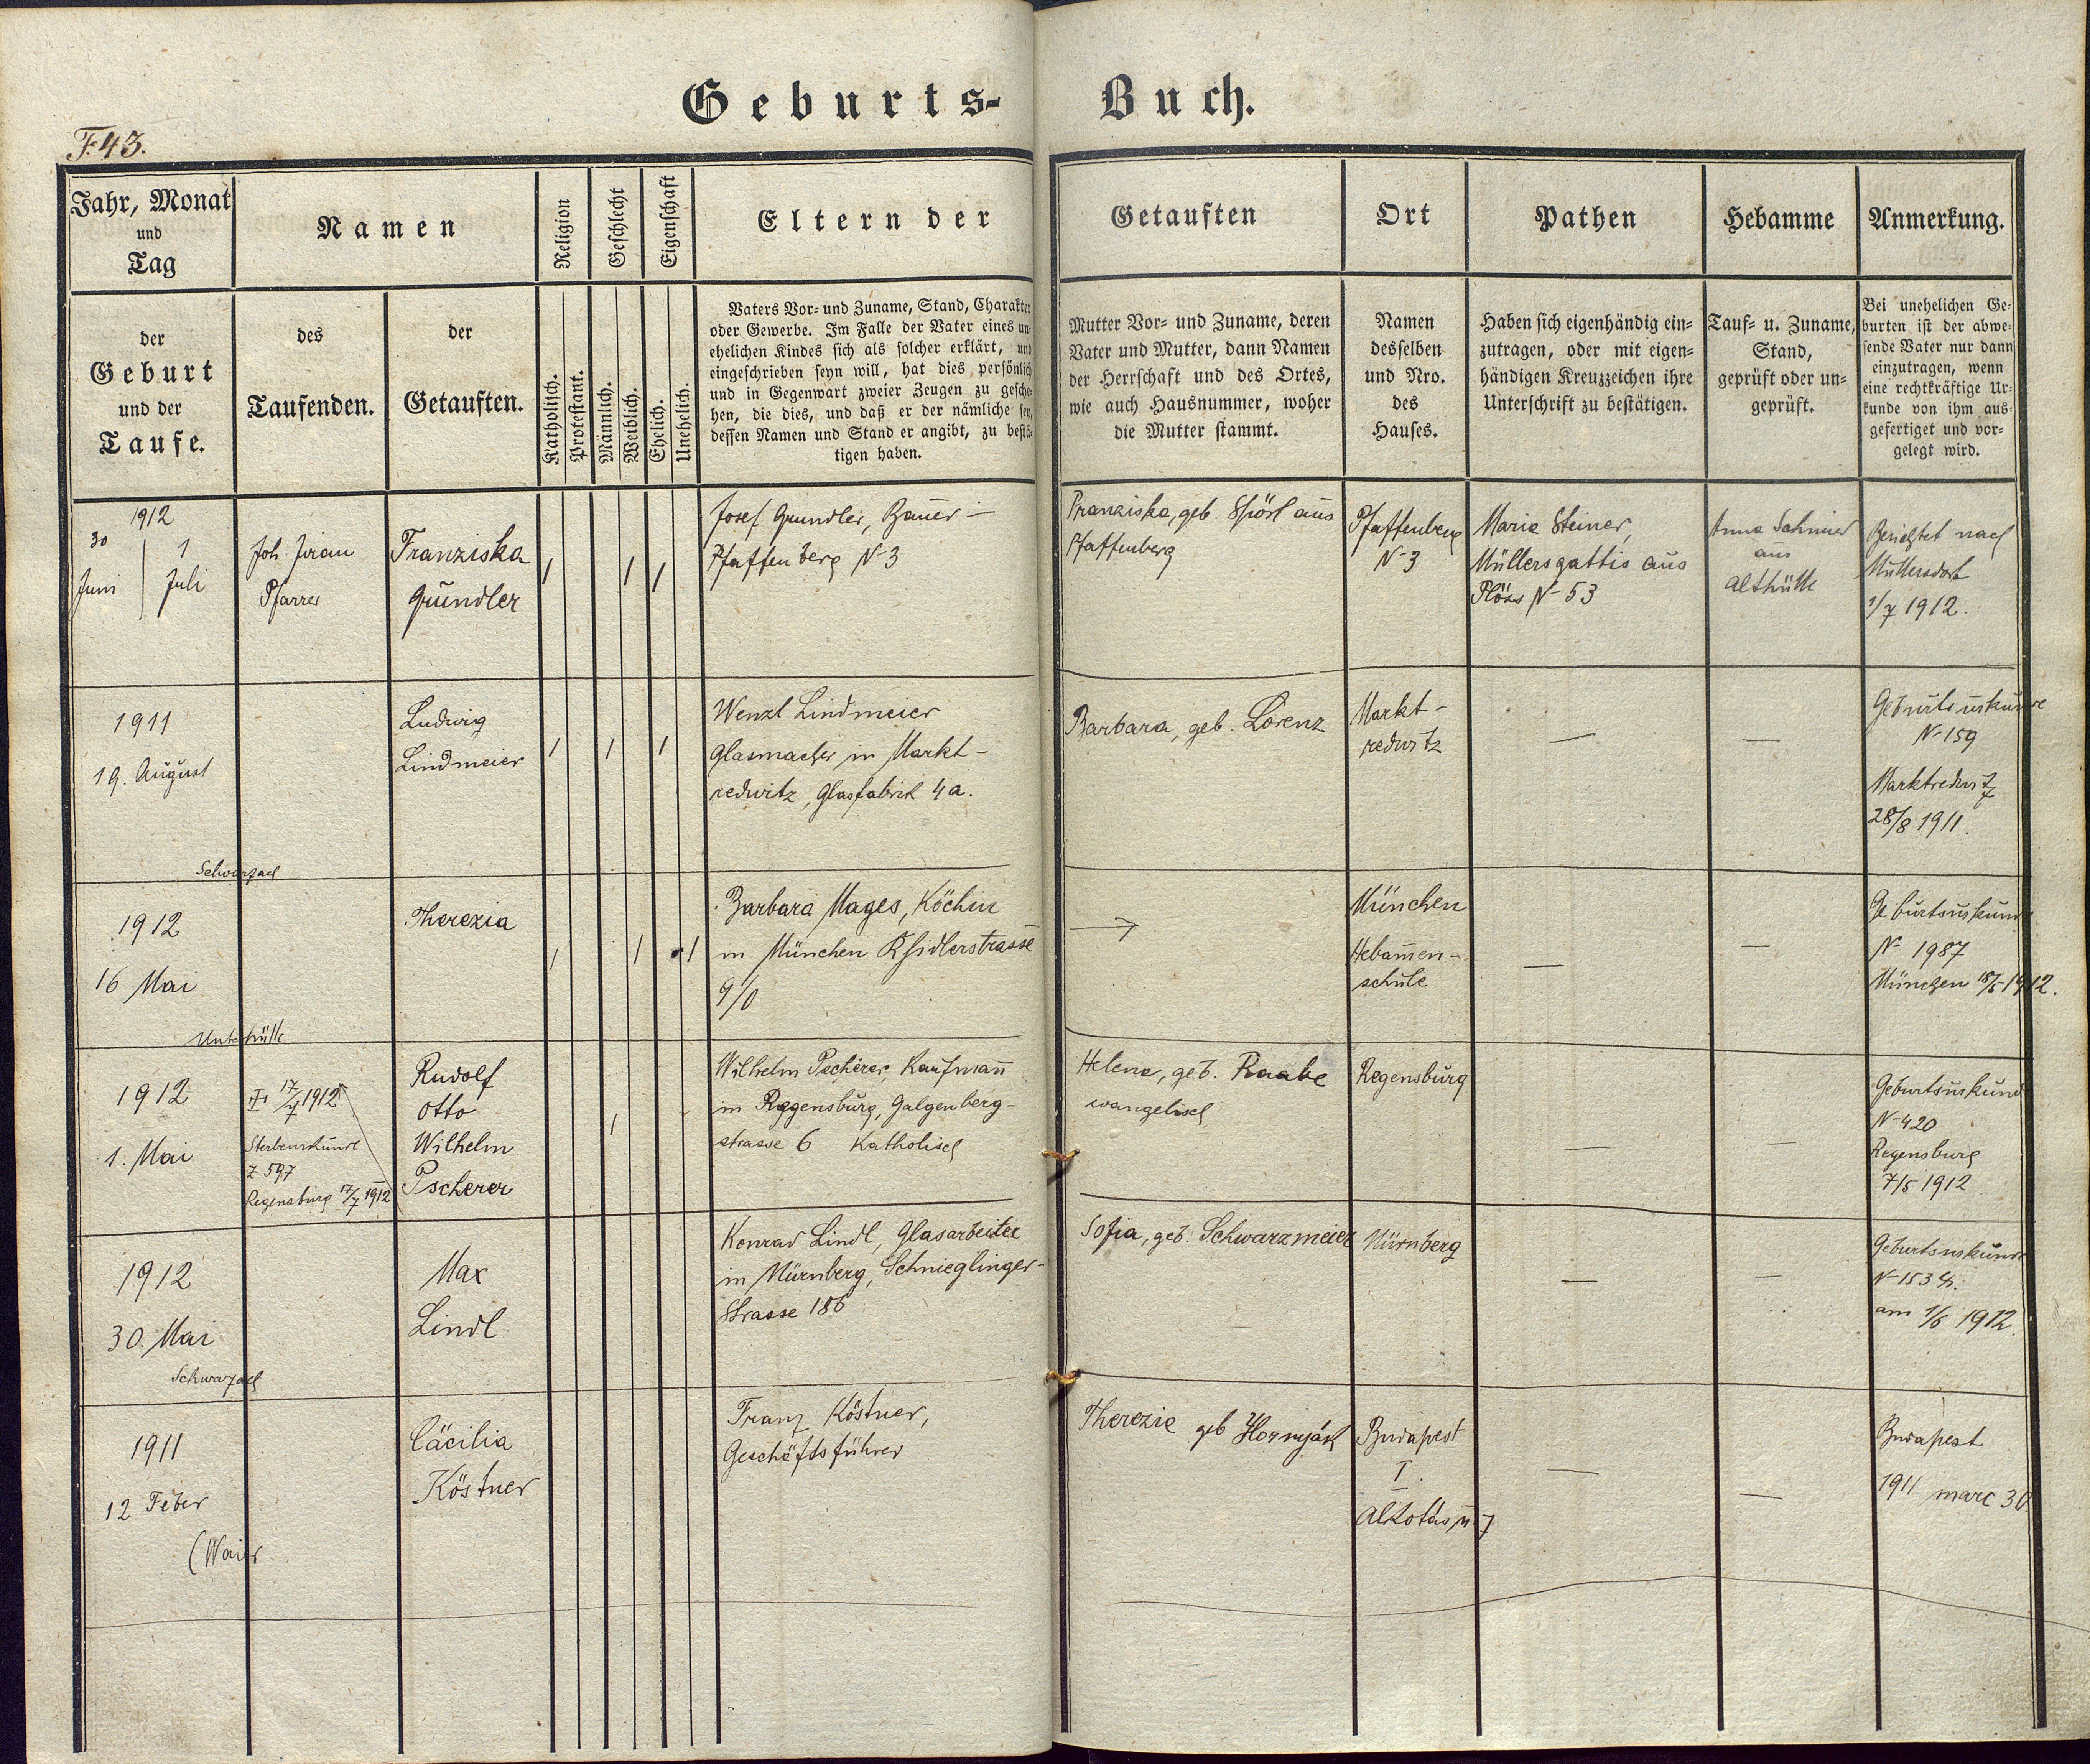 Geburts- Buch.
F. 43.
Jahr, Monat
und
Tag
Namen
Religion
Geschlecht
Eigenschaft
Eltern der
Getauften
Ort
Pathen
Hebamme
Anmerkung.
der
Geburt
und der
Taufe.
des
Taufenden.
der
Getauften.
Katholisch.
Protestant.
Männlich.
Weiblich.
Ehelich.
Unehelich.
Vaters Vor- und Zuname, Stand, Charakter
oder Gewerbe. Im Falle der Vater eines un-
ehelichen Kindes sich als solcher erklärt, und
eingeschrieben seyn will, hat dies persönlich
und in Gegenwart zweier Zeugen zu gesche-
hen, die dies, und daß er der nämliche sey,
dessen Namen und Stand er angibt, zu bestä-
tigen haben.
Mutter Vor- und Zuname, deren
Vater und Mutter, dann Namen
der Herrschaft und des Ortes,
wie auch Hausnummer, woher
die Mutter stammt.
Namen
desselben
und Nro.
des
Hauses.
Haben sich eigenhändig ein-
zutragen, oder mit eigen-
händigen Kreuzzeichen ihre
Unterschrift zu bestätigen.
Tauf- u. Zuname,
Stand,
geprüft oder un-
geprüft.
Bei unehelichen Ge-
burten ist der abwe-
sende Vater nur dann
einzutragen, wenn
eine rechtkräftige Ur-
kunde von ihm aus-
gefertiget und vor-
gelegt wird.
1912
30 1
Juni Juli
Joh. Jiran
Pfarrer
Franziska
Gründler
Josef Grundler, Bauer -
Pfaffenberg N 3
Franziska, geb. Spörl aus
Pfaffenberg
Pfaffenberg
N 3
Maria Steiner,
Müllersgattin aus
Plöss N 53
Anna
aus
Althütte
Berichtet nach
Muttersdorf
1/7 1912.
1911
19. August
Schwarzach
Ludwig
Lindmeier
Wenzl Lindmeier
Glasmacher in Markt-
redwitz, Glasfabrik 4a.
Barbara, geb. Lorenz
Markt-
redwitz
—
—
Geburtsurkunde
N 159
Marktredwitz
28/8 1911.
1912
16 Mai
Unterhütte
Therezia
Barbara Mages, Köchin
in München
9/0
München
Hebamen-
schule
—
—
Geburtsurkunde
N 1987
München 18/5 1912.
1912
1. Mai
17/7 1912
Sterbeurkunde
Z 597
Regensburg 17/7 1912
Rudolf
Otto
Wilhelm
Pscherer
Wilhelm Pscherer, Kaufmann
in Regensburg, Galgenberg-
strasse 6 Katholisch
Helene, geb. Raabe
evangelisch
Regensburg
—
—
Geburtsurkunde
N 420
Regensburg
7/5 1912
1912
30. Mai
Schwarzach
Max
Lindl
Konrad Lindl, Glasarbeiter
in Nürnberg, Schnieglinger-
Strasse 186
Sofia, geb. Schwarzmeier
Nürnberg
—
—
Geburtsurkunde
am 1/6 1912.
1911
12 Feber
(Waier
Cäcilia
Köstner
Franz Köstner,
Geschäftsführer
Therezie geb Hornyák
Budapest
I.
Alkotás u 7
—
—
Budapest
1911 marc 30